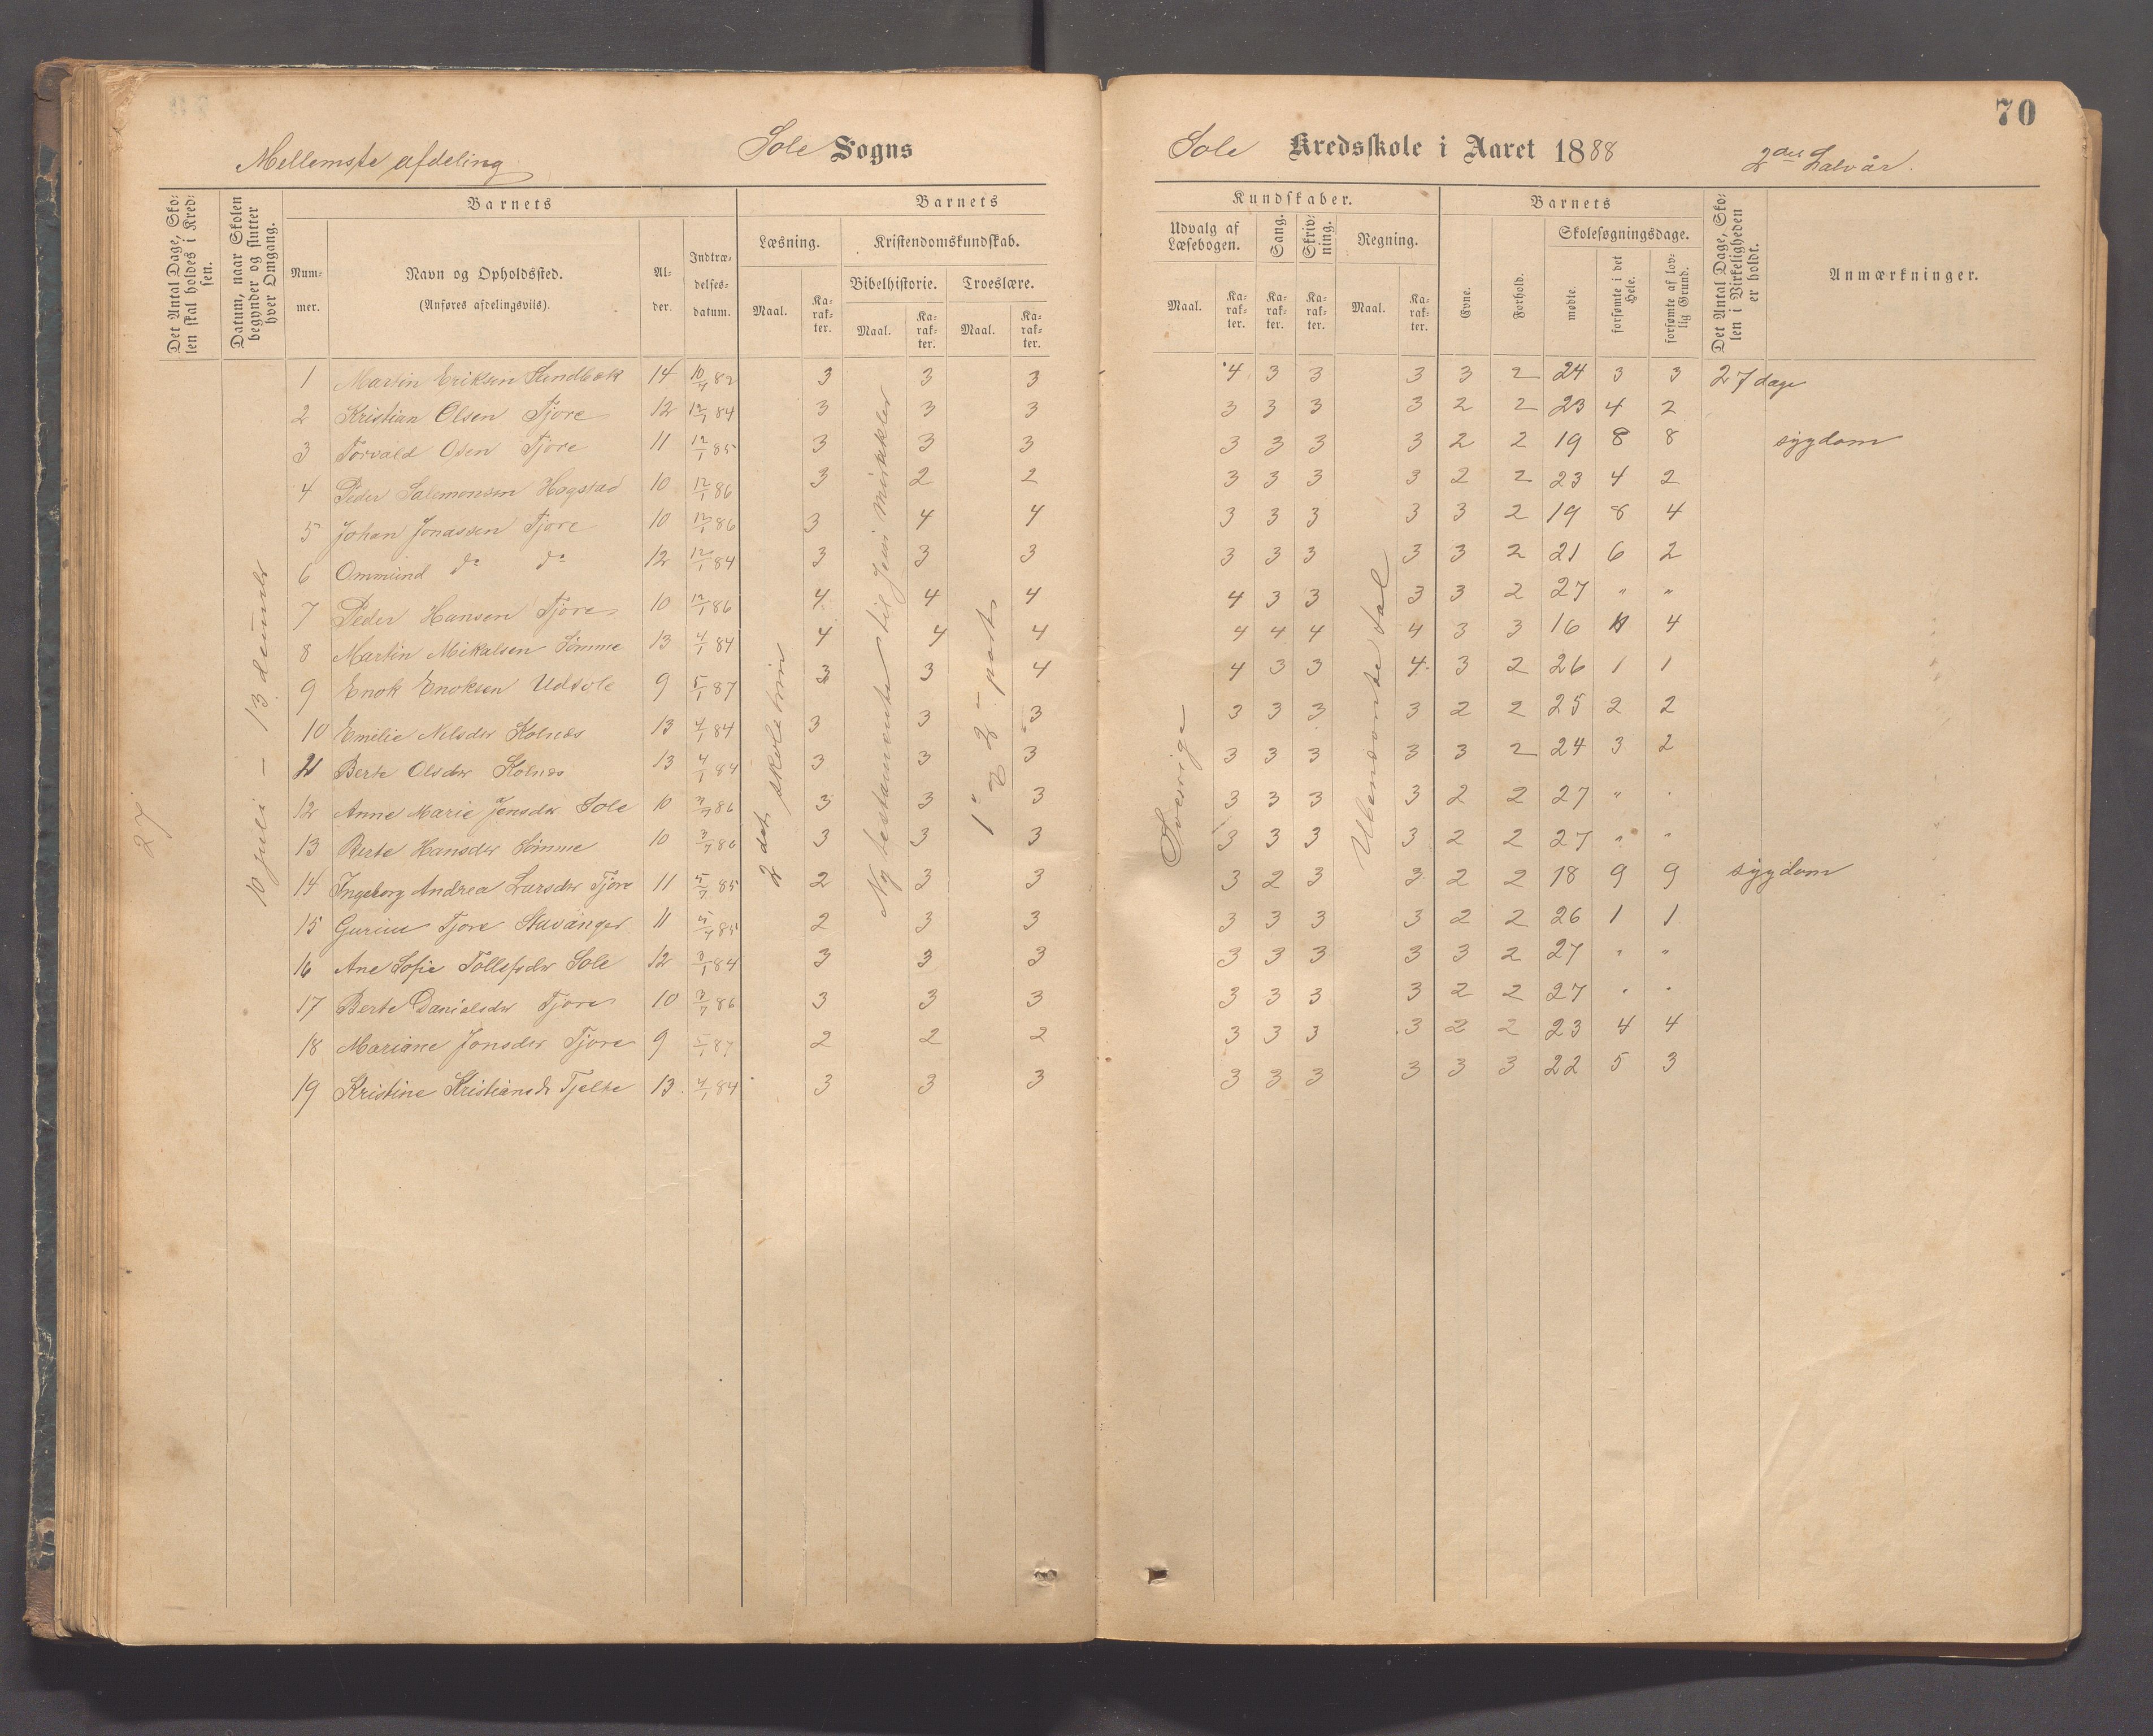 70
Mellemste afdeling Sole Sogns Sole Kredsskole i Aaret 1888 2det Halvår.
Det Antal Dage, Skolen skal holdes i Kredsen.
Datum, naar Skolen begynder og slutter hver Omgang.
Barnets
Nummer.
Navn og Opholdssted.
(Anføres afdelingsviis).
Alder.
Indtrædelsesdatum.
Barnets
Læsning.
Maal.
Karakter.
Kristendomskundskab.
Bibelhistorie.
Maal.
Karakter.
Troeslære.
Maal.
Karakter.
Kundskaber.
Udvalg af Læsebogen.
Maal.
Karakter.
Sang.
Karakter.
Skrivning.
Karakter.
Regning.
Maal.
Karakter.
Barnets
Evne.
Forhold.
Skolesøgningsdage.
mødte.
forsømte i det Hele.
forsømte af lovlig Grund.
Det Antal Dage, Skolen i Virkeligheden er holdt.
Anmærkninger.
27
10 juli – 13 decemb
2det skoletrin
Ny testamente til Jesu mirakler
1ste og 2den part
Sverige
Ubenævnte tal
1 Martin Eriksen 14 10/7 82 3 3 3 4 3 3 3 3 2 24 3 3 27 dage
2 Kristian Olsen Tjore 12 12/1 84 3 3 3 3 3 3 3 2 2 23 4 2
3 Torvald Osen Tjore 11 12/1 85 3 3 3 3 3 3 3 2 2 19 8 8 sygdom
4 Peder Salemonsen Hogstad 10 12/1 86 3 2 2 3 3 3 3 2 2 23 4 2
5 Johan Jonassen Tjore 10 12/1 86 3 4 4 3 3 3 3 3 2 19 8 4
6 Ommund do do 12 12/1 84 3 3 3 3 3 3 3 3 2 21 6 2
7 Peder Hansen Tjore 10 12/1 86 4 4 4 4 3 3 3 3 2 27 " "
8 Martin Mikalsen Sømme 13 4/1 84 4 4 4 4 4 4 4 3 3 16 11 4
9 Enok Enoksen Udsole 9 5/1 87 3 3 4 4 3 3 4 3 2 26 1 1
10 Emilie Nilsdtr Kolnes 13 4/1 84 3 3 3 3 3 3 3 2 2 25 2 2
11 Berte Olsdtr Kolnes 13 4/1 84 3 3 3 3 3 3 3 3 2 24 3 2
12 Anne Marie Jensdtr Sole 10 3/7 86 3 3 3 3 3 3 3 2 2 27 " "
13 Berte Hansdtr Sømme 10 3/7 86 3 3 3 3 3 3 3 2 2 27 " "
14 Ingeborg Andrea Larsdtr Tjore 11 5/7 85 2 3 3 3 2 3 3 2 2 18 9 9 sygdom
15 Gurine Tjore Stavanger 11 5/7 85 2 3 3 3 3 3 3 2 2 26 1 1
16 Ane Sofie Tollefsdtr Sole 12 3/1 84 3 3 3 3 3 3 3 3 2 27 " "
17 Berte Danielsdtr Tjore 10 3/7 86 3 3 3 3 3 3 3 2 2 27 " "
18 Mariane Jonsdtr Tjore 9 87 2 2 2 3 3 3 3 2 2 23 4 4
19 Kristine Kristiansdr Tjelte 13 4/1 84 3 3 3 3 3 3 3 3 3 22 5 3